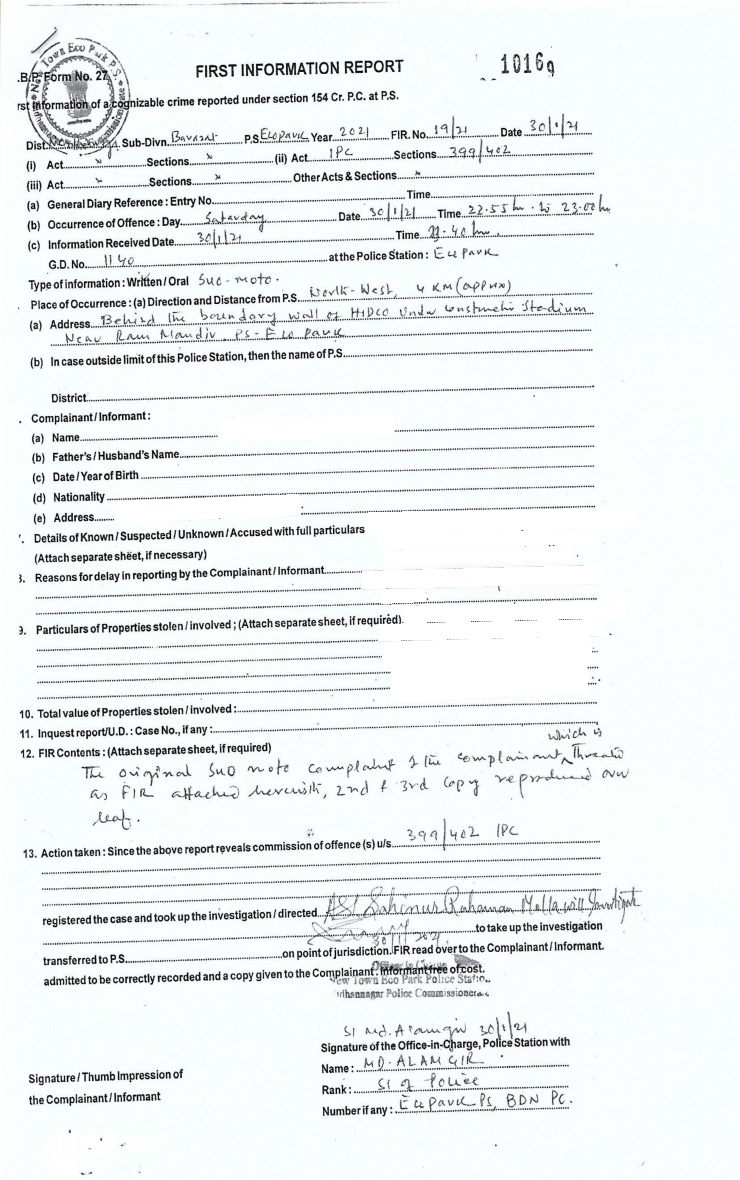 New Town Eco Park P.S.
FIRST INFORMATION REPORT
10169
.B.P. Form No. 27
rst Information of a cognizable crime reported under section 154 Cr. P.C. at P.S.
Dist. Sub-Divn. Barasat P.S. Ecopark Year 2021 FIR. No. 19/21 Date 30/1/21
(i) Act x Sections x (ii) Act IPC Sections 399/402
(iii) Act x Sections x Other Acts & Sections x
(a) General Diary Reference : Entry No. Time
(b) Occurrence of Offence : Day Saturday Date 30/1/21 Time 22.55 hr. to 23.00 hr
(c) Information Received Date 30/1/21 Time .40 hr.
G.D. No. 1140 at the Police Station : Eco Park
Type of information : Written / Oral Suo-moto.
Place of Occurrence : (a) Direction and Distance from P.S. North-West, 4 KM (approx)
(a) Address Behind the boundary wall of HIDCO Under Construction Stadium
Near Ram Mandir, PS-Eco Park
(b) In case outside limit of this Police Station, then the name of P.S.
District
. Complainant / Informant :
(a) Name
(b) Father's / Husband's Name
(c) Date / Year of Birth
(d) Nationality
(e) Address
. Details of Known / Suspected / Unknown / Accused with full particulars
(Attach separate sheet, if necessary)
. Reasons for delay in reporting by the Complainant / Informant
9. Particulars of Properties stolen / involved ; (Attach separate sheet, if required).
10. Total value of Properties stolen / involved :
11. Inquest report/U.D. : Case No., if any :
12. FIR Contents : (Attach separate sheet, if required)
which is
The original suo moto complaint of the complainant Threated
as FIR attached herewith, 2nd & 3rd copy reproduced over
leaf.
13. Action taken : Since the above report reveals commission of offence (s) u/s 399/402 IPC
registered the case and took up the investigation / directed ASI Sahenur Rahaman Molla will Investigate
to take up the investigation
30/1/2021
transferred to P.S. on point of jurisdiction. FIR read over to the Complainant / Informant.
admitted to be correctly recorded and a copy given to the Complainant. Informant free of cost.
Officer In Charge
New Town Eco Park Police Station
idhannagar Police Commissionerate
SI Md. Alamgir 30/1/21
Signature of the Office-in-Charge, Police Station with
Name : MD. ALAMGIR
Rank : SI of Police
Number if any : Eco Park PS, BDN PC.
Signature / Thumb Impression of
the Complainant / Informant